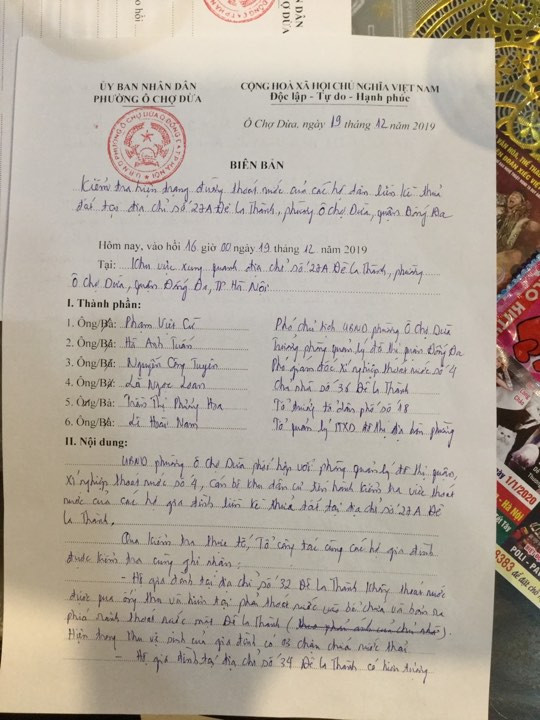 ỦY BAN NHÂN DÂN
PHƯỜNG Ô CHỢ DỪA
CỘNG HOÀ XÃ HỘI CHỦ NGHĨA VIỆT NAM
Độc lập - Tự do - Hạnh phúc
Ô Chợ Dừa, ngày 19 tháng 12 năm 2019
BIÊN BẢN
Kiểm tra hiện trạng đường thoát nước của các hộ dân liền kề thửa
đất tại địa chỉ số 27A Đê La Thành, phường Ô Chợ Dừa, quận Đống Đa
Hôm nay, vào hồi 16 giờ 00 ngày 19 tháng 12 năm 2019
Tại: Khu vực xung quanh địa chỉ số 27A Đê La Thành, phường
Ô Chợ Dừa, quận Đống Đa, TP Hà Nội
I. Thành phần:
1. Ông/Bà: Phạm Việt Cử Phó chủ tịch UBND phường Ô Chợ Dừa
2. Ông/Bà: Hà Anh Tuấn Trưởng phòng quản lý đô thị quận Đống Đa
3. Ông/Bà: Nguyễn Công Tuyên Phó giám đốc Xí nghiệp thoát nước số 4
4. Ông/Bà: Lê Ngọc Loan Chủ nhà số 36 Đê La Thành
5. Ông/Bà: Trần Thị Phượng Hoa Tổ trưởng tổ dân phố số 18
6. Ông/Bà: Lê Hoài Nam Tổ quản lý TTXD đô thị địa bàn phường
II. Nội dung:
UBND phường Ô Chợ Dừa phối hợp với phòng quản lý đô thị quận,
Xí nghiệp thoát nước số 4, Cán bộ khu dân cư tiến hành kiểm tra việc thoát
nước của các hộ gia đình liền kề thửa đất tại địa chỉ số 27A Đê
La Thành.
Qua kiểm tra thực tế, Tổ công tác cùng các hộ gia đình
được kiểm tra cùng ghi nhận:
- Hộ gia đình tại địa chỉ số 32 Đê La Thành không thoát nước
được qua ống thu và hiện tại phải thoát nước vào bể chứa và bơm ra
phía rãnh thoát nước mặt Đê La Thành
Hiện trong khu vệ sinh của gia đình có 03 chậu chứa nước thải
- Hộ gia đình tại địa chỉ số 34 Đê La Thành có hiện trạng